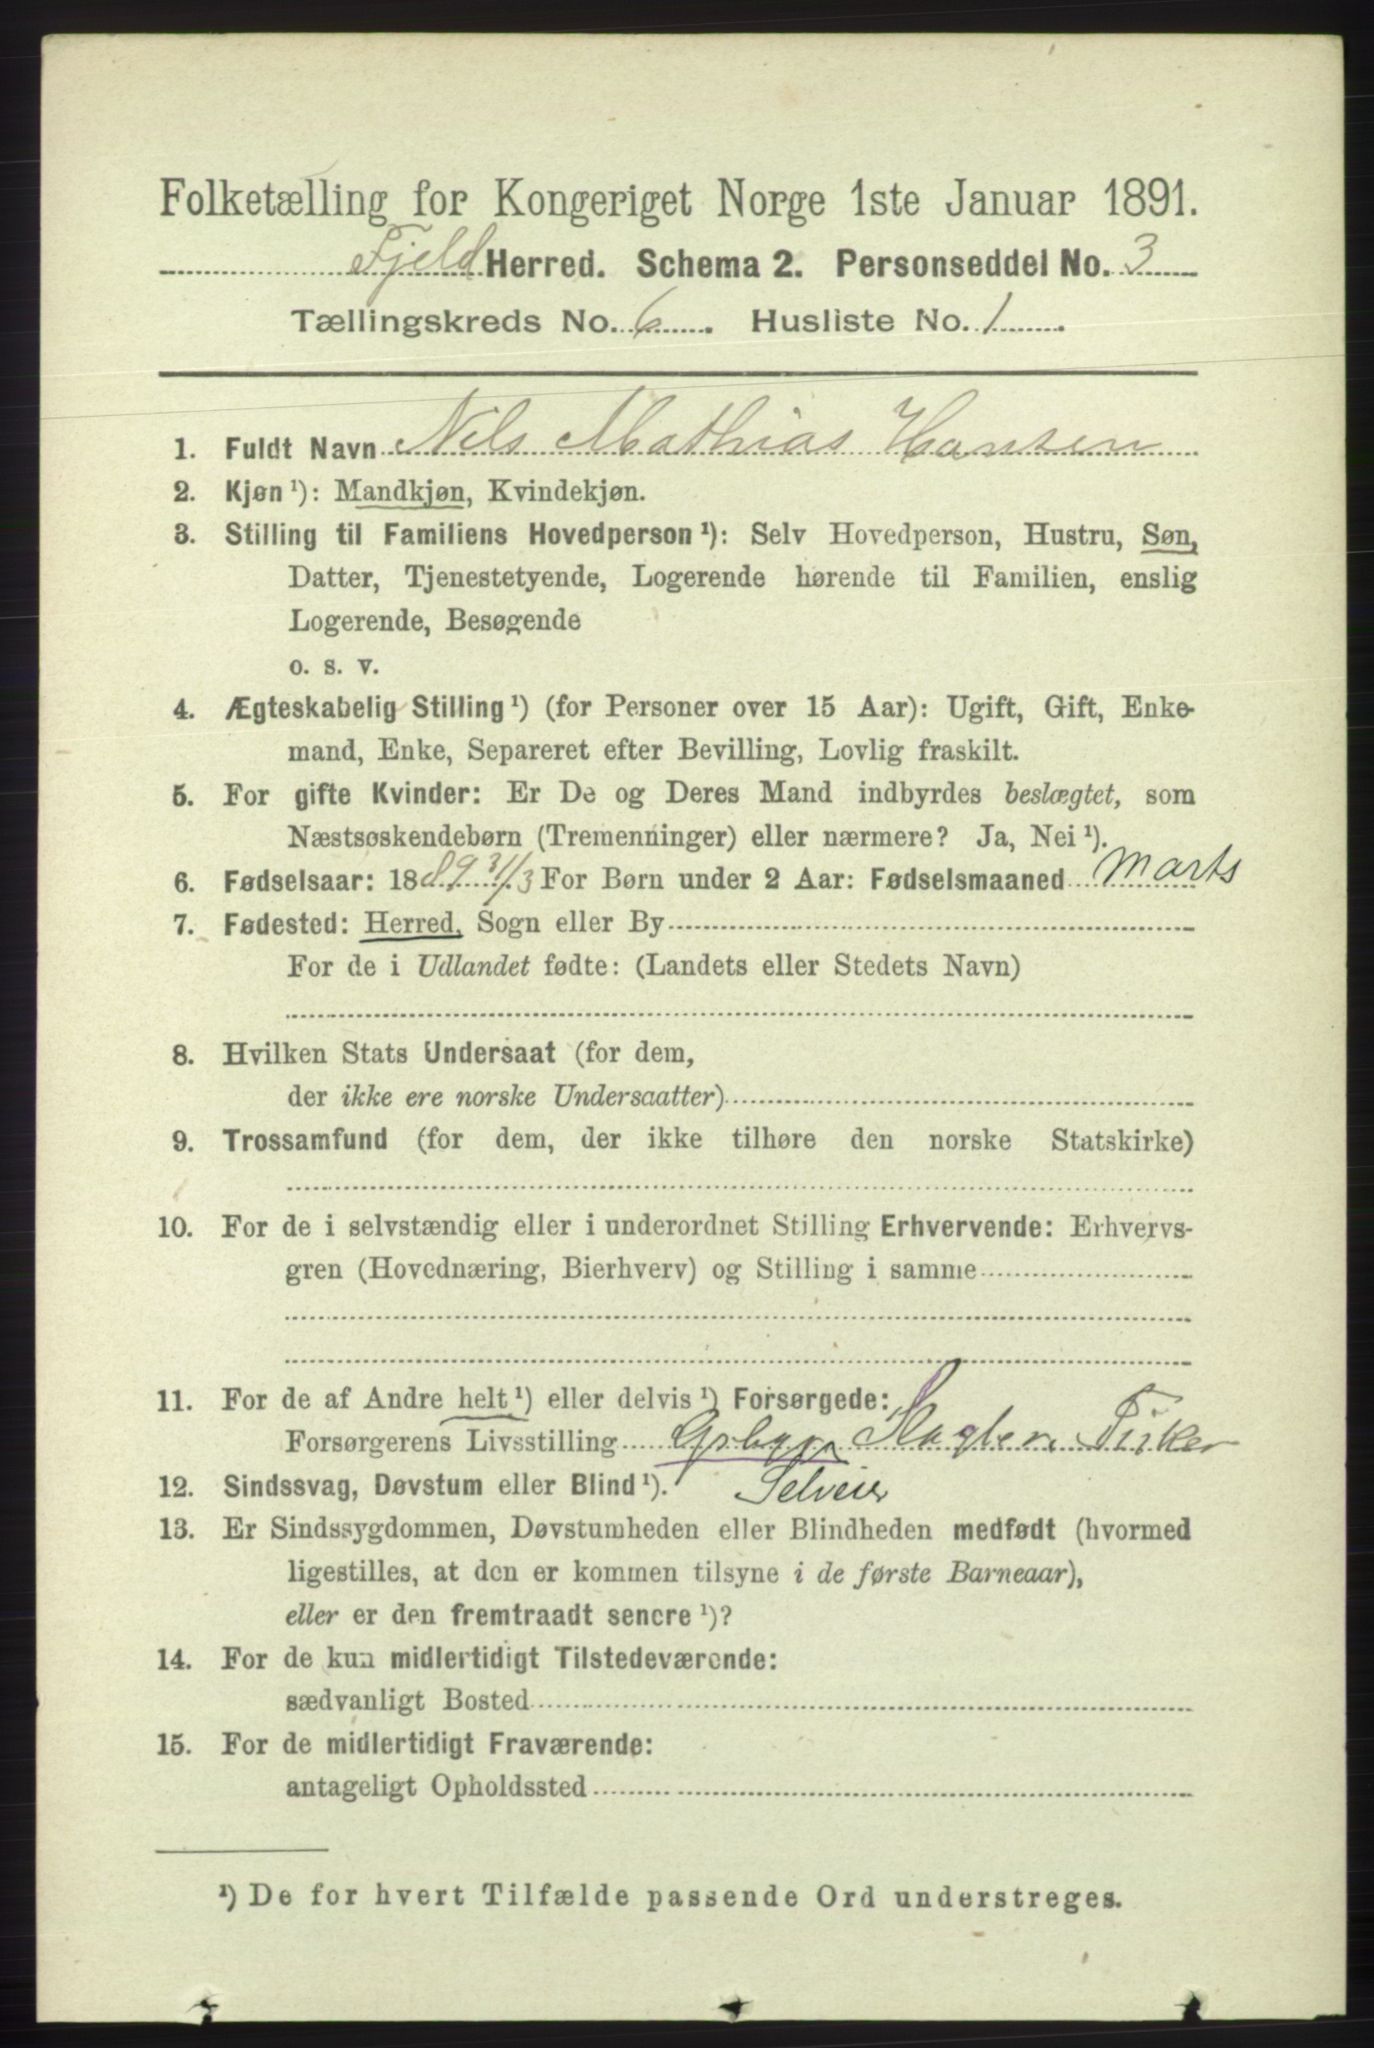 Folketælling for Kongeriget Norge 1ste Januar 1891.
Fjeld Herred. Schema 2. Personseddel No. 3
Tællingskreds No. 6. Husliste No. 1.
1. Fuldt Navn Nils Mathias Hansen
2. Kjøn ¹): Mandkjøn, Kvindekjøn.
3. Stilling til Familiens Hovedperson ¹): Selv Hovedperson, Hustru, Søn,
Datter, Tjenestetyende, Logerende hørende til Familien, enslig
Logerende, Besøgende
o. s. v.
4. Ægteskabelig Stilling ¹) (for Personer over 15 Aar): Ugift, Gift, Enke-
mand, Enke, Separeret efter Bevilling, Lovlig fraskilt.
5. For gifte Kvinder: Er De og Deres Mand indbyrdes beslægtet, som
Næstsøskendebørn (Tremenninger) eller nærmere? Ja, Nei ¹).
6. Fødselsaar: 1889 31/3 For Børn under 2 Aar: Fødselsmaaned Marts
7. Fødested: Herred, Sogn eller By
For de i Udlandet fødte: (Landets eller Stedets Navn)
8. Hvilken Stats Undersaat (for dem,
der ikke ere norske Undersaatter)
9. Trossamfund (for dem, der ikke tilhøre den norske Statskirke)
10. For de i selvstændig eller i underordnet Stilling Erhvervende: Erhvervs-
gren (Hovednæring, Bierhverv) og Stilling i samme
11. For de af Andre helt ¹) eller delvis ¹) Forsørgede:
Forsørgerens Livsstilling Fisker
12. Sindssvag, Døvstum eller Blind ¹). Selveier
13. Er Sindssygdommen, Døvstumheden eller Blindheden medfødt (hvormed
ligestilles, at den er kommen tilsyne i de første Barneaar),
eller er den fremtraadt senere ¹)?
14. For de kun midlertidigt Tilstedeværende:
sædvanligt Bosted
15. For de midlertidigt Fraværende:
antageligt Opholdssted
¹) De for hvert Tilfælde passende Ord understreges.